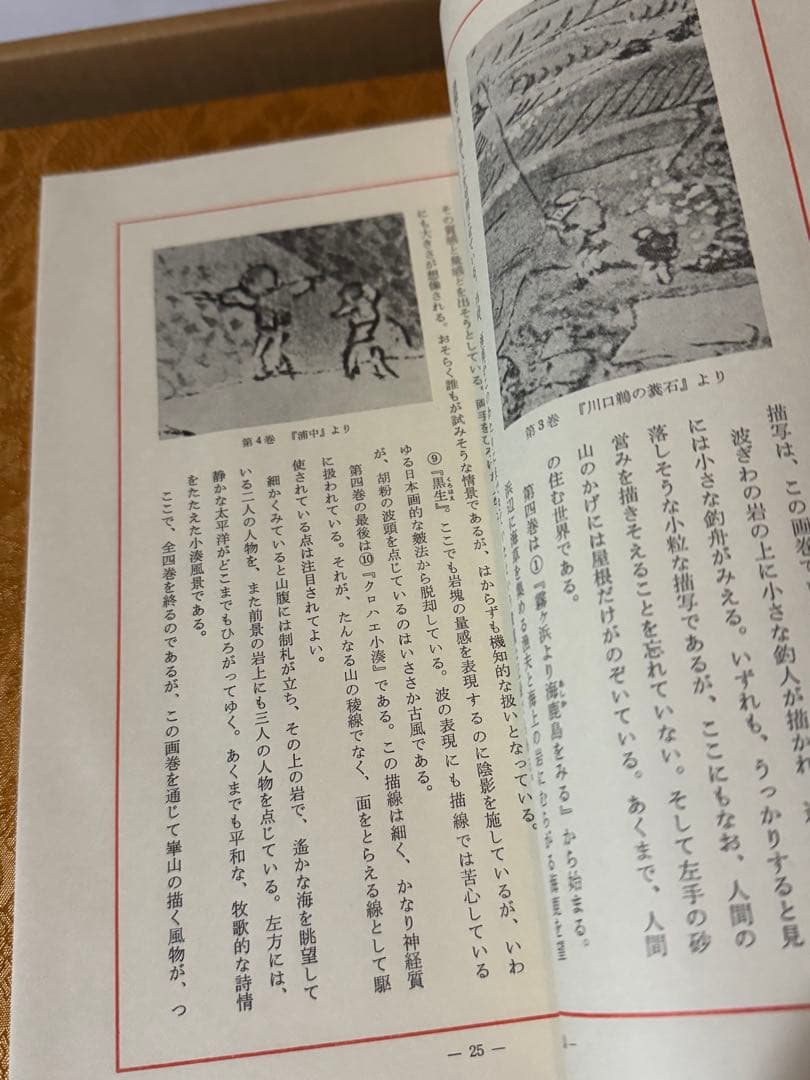 第3巻 『川口鵜の糞石』より
描写は、この画巻で
波ぎわの岩の上に小さな釣人が描かれ、
には小さな釣舟がみえる。いずれも、うっかりすると見
落しそうな小粒な描写であるが、ここにもなお、人間の
営みを描きそえることを忘れていない。そして左手の砂
山のかげには屋根だけがのぞいている。あくまで、人間
の住む世界である。
第四巻は①『霧ヶ浜より海鹿島をみる』から始まる。
浜辺に海草を集める漁夫と海上の岩にむらがる海鹿を
その質感と量感とを出そうとしている。
にも大きさが想像される。おそらく誰もが試みそうな情景であるが、はからずも機知的な扱いとなっている。
第4巻 『浦中』より
⑨『黒生』。ここでも岩塊の量感を表現するのに陰影を施しているが、いわ
ゆる日本画的な皴法から脱却している。波の表現にも描線では苦心している
が、胡粉の波頭を点じているのはいささか古風である。
第四巻の最後は⑩『クロハエ小湊』である。この描線は細く、かなり神経質
に扱われている。それが、たんなる山の稜線でなく、面をとらえる線として駆
使されている点は注目されてよい。
細かくみていると山腹には制札が立ち、その上の岩で、遙かな海を眺望して
いる二人の人物を、また前景の岩上にも三人の人物を点じている。左方には、
静かな太平洋がどこまでもひろがってゆく。あくまでも平和な、牧歌的な詩情
をたたえた小湊風景である。
ここで、全四巻を終るのであるが、この画巻を通じて崋山の描く風物が、つ
— 25 —